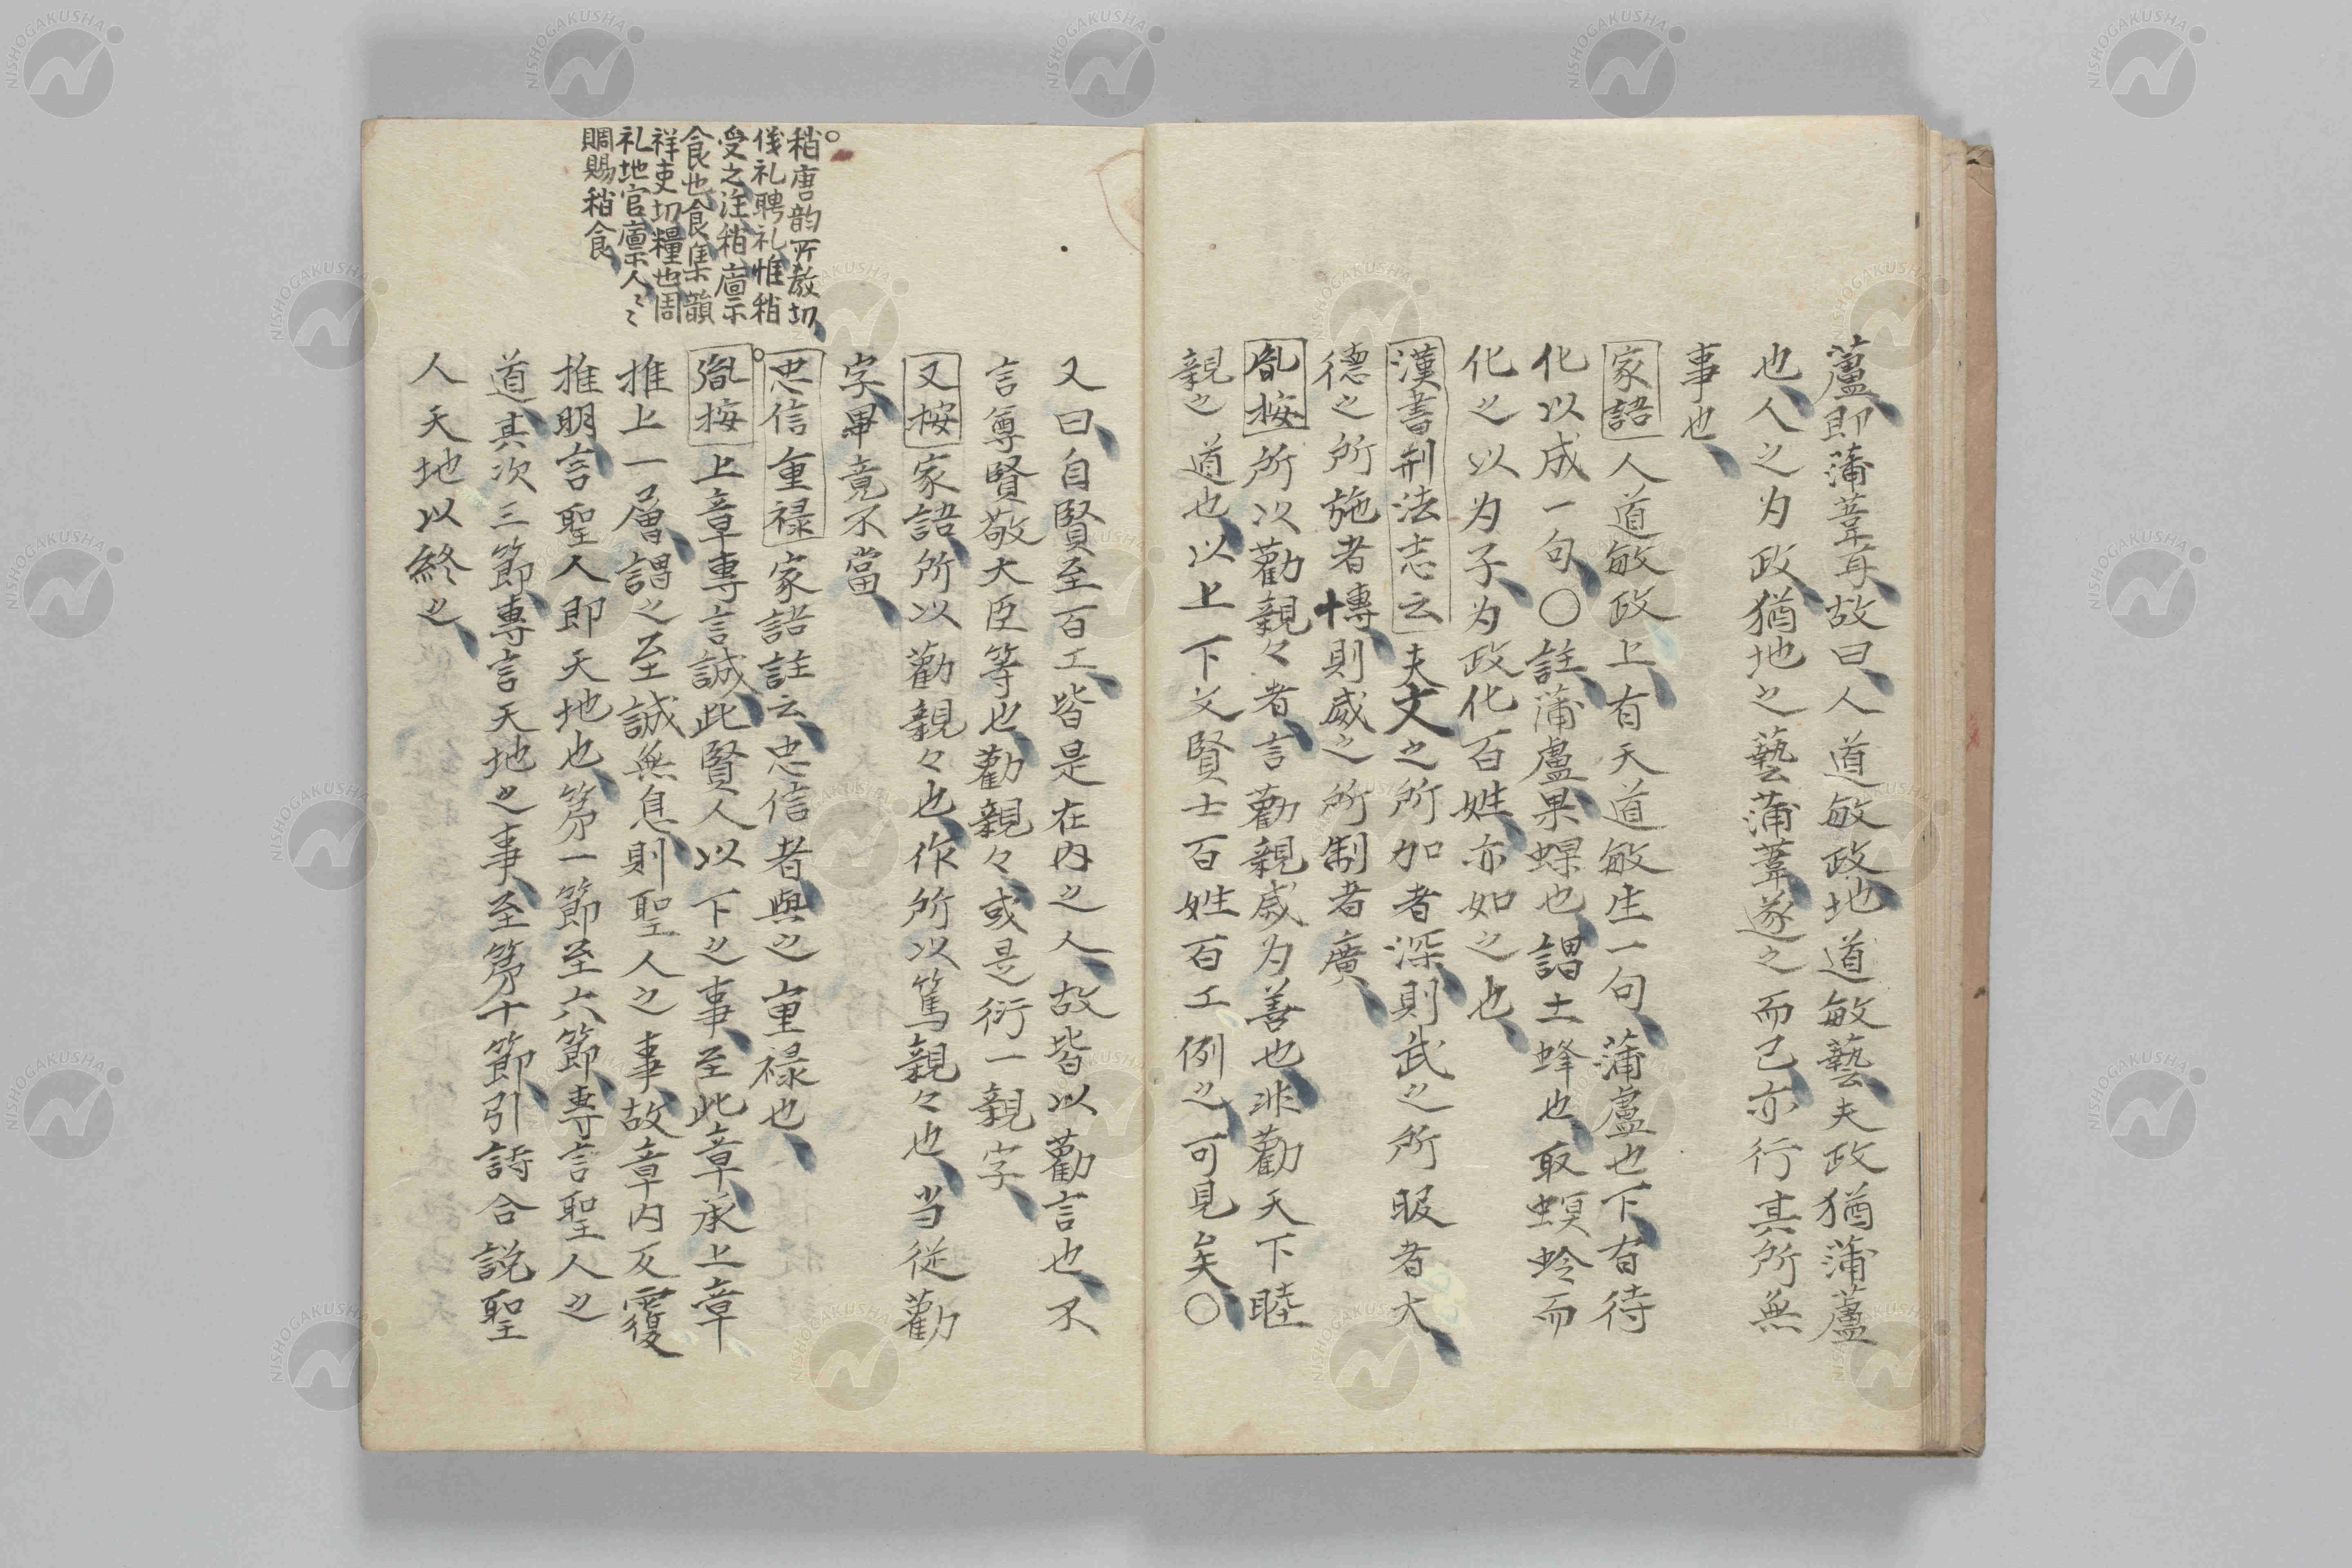 蘆即蒲葦耳故曰人道敏政地道敏藝夫政猶蒲蘆
也人之为政猶地之藝蒲葦遂之而已亦行其所無
事也
家語人道敏政上有天道敏生一句蒲盧也下有待
化以成一句〇註蒲盧果蠃也謂土蜂也取螟蛉而
化之以为子为政化百姓亦如之也
漢書刑法志云夫文之所加者深則武之所服者大
德之所施者博則威之所制者廣
胤按所以勸親々者言勸親戚为善也非勸天下睦
親之道也以上下文賢士百姓百工例之可見矣〇
又曰自賢至百工皆是在内之人故皆以勸言也不
言尊賢敬大臣等也勸親々或是衍一親字
又按家語所以勸親々也作所以篤親々也当従勸
字畢竟不當
忠信重禄家語註云忠信者與之重禄也
胤按上章專言誠此賢人以下之事至此章承上章
推上一層謂之至誠無息則聖人之事故章内反覆
推明言聖人即天地也第一節至六節專言聖人之
道其次三節專言天地之事至第十節引詩合説聖
人天地以終之
稍唐韵所教切
儀礼聘礼惟稍
受之注稍廩
食也食集韻
祥吏切糧也周
礼地官廩人〻
賙賜稍食
NISHOGAKUSHA